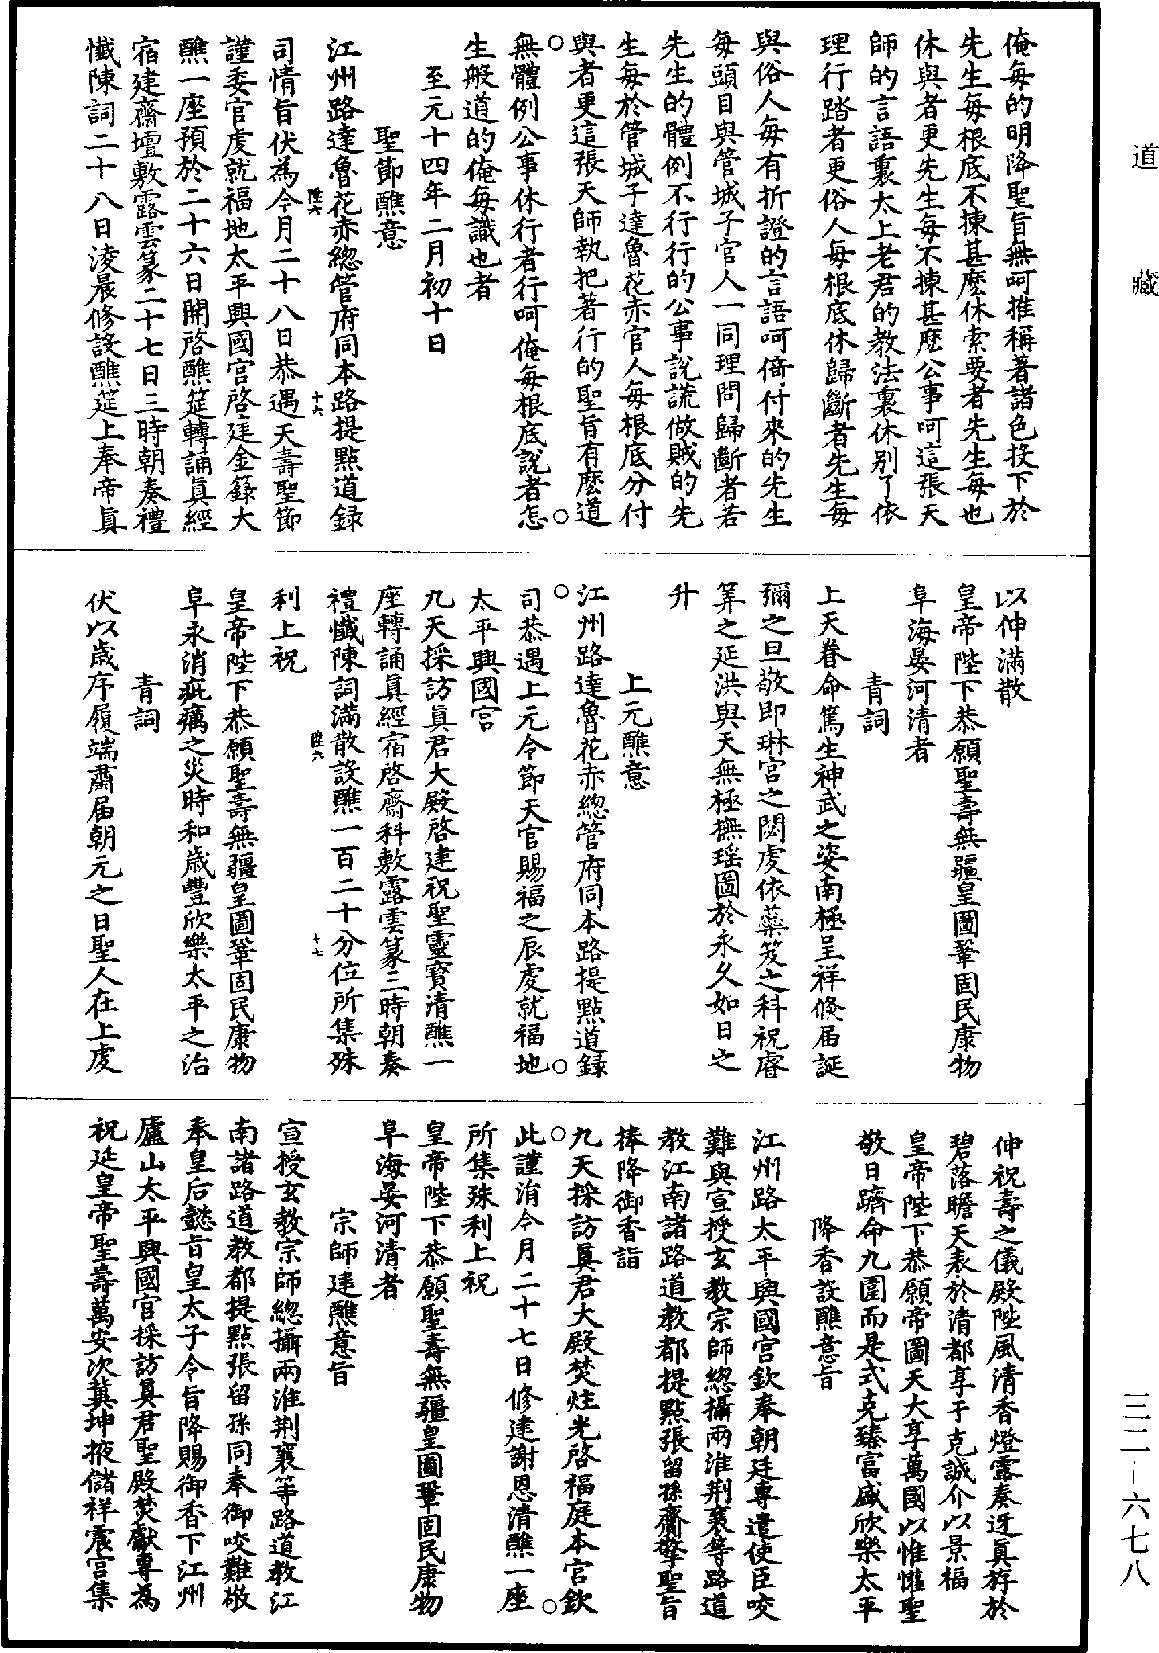 道藏
俺每的明降聖旨無呵推稱著諸色投下於
先生每根底不揀甚麽休索要者先生每也
休與者更先生每不揀甚麽公事呵這張天
師的言語裏太上老君的教法裏休別了依
理行踏者更俗人每根底休歸斷者先生每
與俗人每有折證的言語呵倚付來的先生
每頭目與管城子官人一同理問歸斷者若
先生的體例不行行的公事說謊做賊的先
生每於管城子達魯花赤官人每根底分付
與者更這張天師執把著行的聖旨有麽道
無體例公事休行者行呵俺每根底說者怎
生般道的俺每識也者
至元十四年二月初十日
聖節醮意
江州路達魯花赤總管府同本路提點道録
陸六
十六
司情旨伏為今月二十八日恭遇天壽聖節
謹委官虔就福地太平興國宮啓建金籙大
醮一座預於二十六日開啓醮筵轉誦眞經
宿建齋壇敷露雲篆二十七日三時朝奏禮
懺陳詞二十八日淩晨修設醮筵上奉帝眞
以伸滿散
皇帝陛下恭願聖壽無疆皇圖鞏固民康物
阜海晏河清者
青詞
上天眷命篤生神武之姿南極呈祥倏届誕
彌之旦敬即琳宮之閟虔依蘂笈之科祝睿
筭之延洪與天無極撫瑶圖於永久如日之
升
上元醮意
江州路達魯花赤總管府同本路提點道録
司恭遇上元令節天官賜福之辰虔就福地
太平興國宮
九天採訪眞君大殿啓建祝聖靈寶清醮一
座轉誦眞經宿啓齋科敷露雲篆三時朝奏
禮懺陳詞滿散設醮一百二十分位所集殊
陸六
十七
利上祝
皇帝陛下恭願聖壽無疆皇圖鞏固民康物
阜永消疵癘之災時和歲豐欣樂太平之治
青詞
伏以歲序履端肅届朝元之日聖人在上虔
伸祝壽之儀殿陛風清香燈露奏迓眞斿於
碧落瞻天表於清都享于克誠介以景福
皇帝陛下恭願帝圖天大享萬國以惟懽聖
敬日躋命九圍而是式克臻富盛欣樂太平
降香設醮意旨
江州路太平興國宮欽奉朝廷專遣使臣咬
難與宣授玄教宗師總攝兩淮荆襄等路道
教江南諸路道教都提點張留孫齎擎聖旨
捧降御香詣
九天採訪眞君大殿焚炷光啓福庭本宮欽
此謹涓今月二十七日修建謝恩清醮一座
所集殊利上祝
皇帝陛下恭願聖壽無疆皇圖鞏固民康物
阜海晏河清者
宗師建醮意旨
宣授玄教宗師總攝兩淮荆襄等路道教江
南諸路道教都提點張留孫同奉御咬難敬
奉皇后懿旨皇太子令旨降賜御香下江州
廬山太平興國宮採訪眞君聖殿焚獻專為
祝延皇帝聖壽萬安次冀坤掖儲祥震宮集
三二-六七八